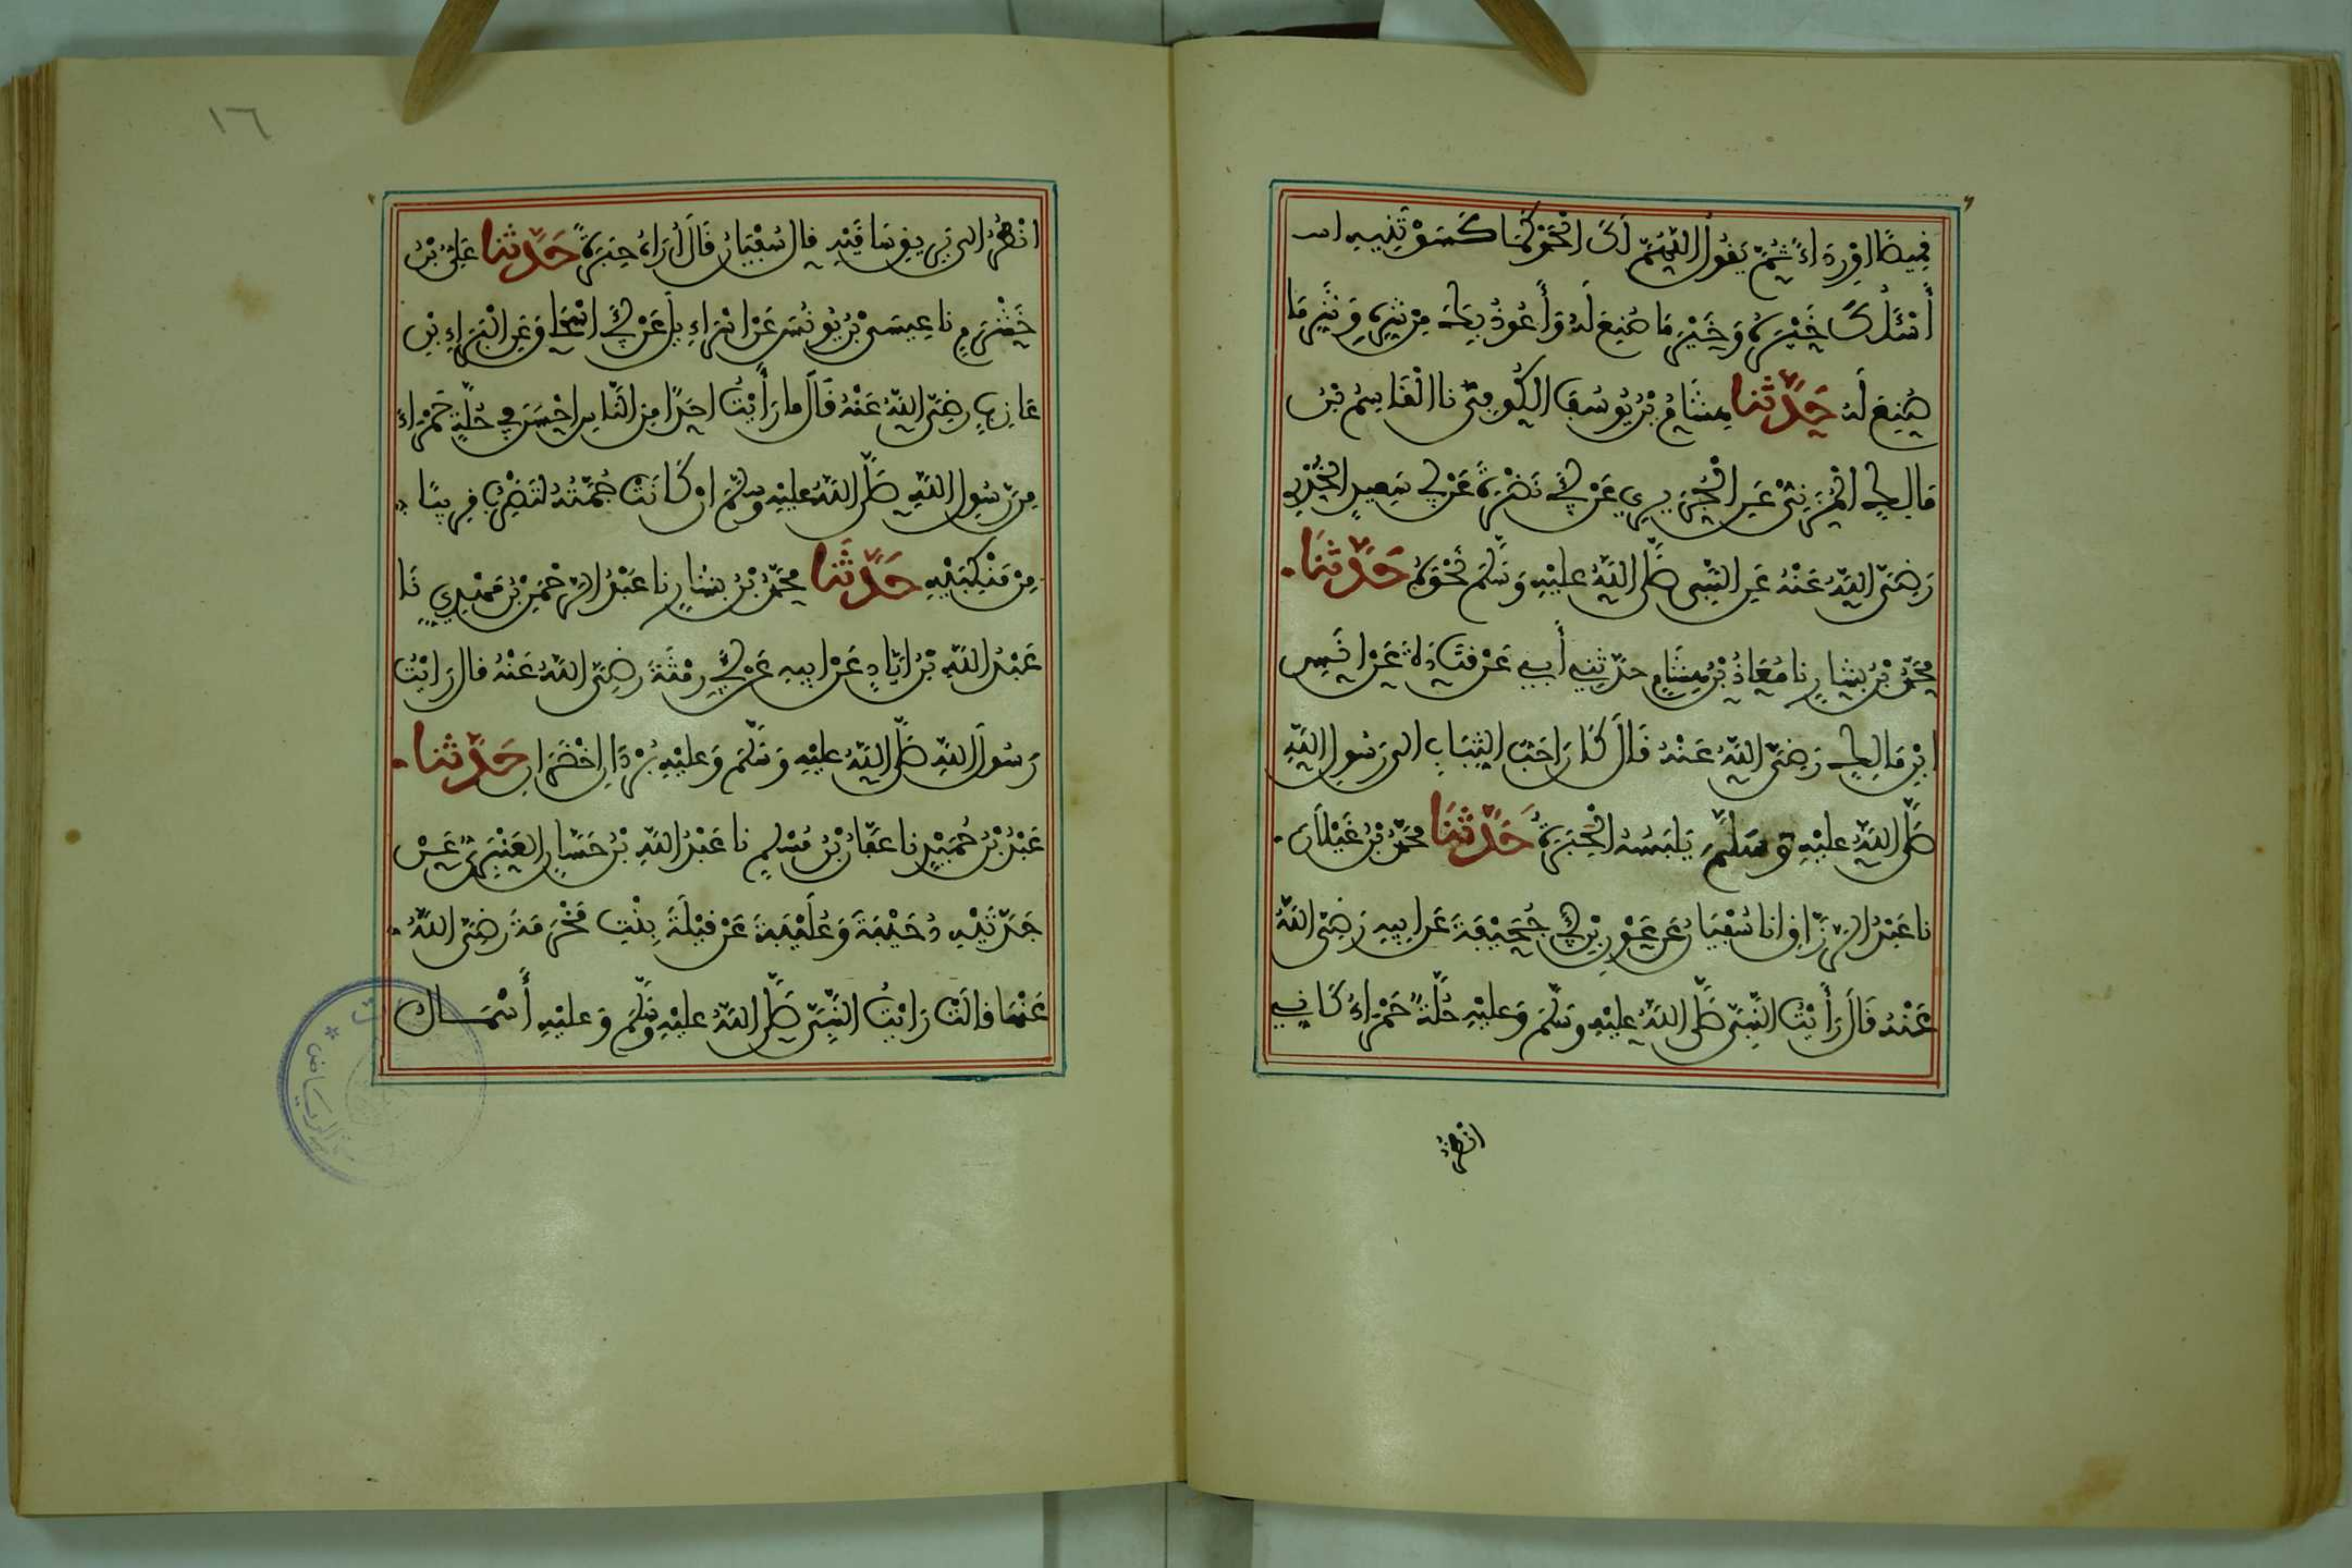 فميصًا اوْ رِدَاءً ثُمَّ يَفُولُ اللَّهُمَّ لَكَ الْحَمْدُ كَمَا كَسَوْتَنِيهِ
أَسْئَلُكَ خَيْرَهُ وَخَيْرَ مَا صُنِعَ لَهُ وَأَعُوذُ بِكَ مِنْ شَرِّهِ وَشَرِّ مَا
صُنِعَ لَهُ حَدَّثَنَا هِشَامُ بْنُ يُونُسَ الْكُوفِيُّ نا الْقَاسِمُ بْنُ
مَالِكٍ الْمُزَنِيُّ عَنِ الْجُرَيْرِيِّ عَنْ أَبِي نَضْرَةَ عَنْ أَبِي سَعِيدٍ الْخُدْرِي
رَضِيَ اللَّهُ عَنْهُ عَنِ النَّبِيِّ صَلَّى اللَّهُ عَلَيْهِ وَسَلَّمَ نَحْوَهُ حَدَّثَنَا
مُحَمَّدُ بْنُ بَشَّارٍ نا مُعَاذُ بْنُ هِشَامٍ حَدَّثَنِي أَبِي عَنْ قَتَادَةَ عَنْ انَسِ
ابْنِ مَالِكٍ رَضِيَ اللَّهُ عَنْهُ قَالَ كَانَ احَبَّ الثِّيَابِ الى رَسُولِ اللَّهِ
صَلَّى اللَّهُ عَلَيْهِ وَسَلَّمَ يَلْبَسُهُ الْحِبَرَةُ حَدَّثَنَا مَحْمُودُ بْنُ غَيْلَانَ
نا عَبْدُ الرَّزَّاقِ انا سُفْيَانُ عَنْ عَوْنِ بْنِ أَبِي جُحَيْفَةَ عَنْ ابِيهِ رَضِيَ اللَّهُ
عَنْهُ قَالَ رَأَيْتُ النَّبِيَّ صَلَّى اللَّهُ عَلَيْهِ وَسَلَّمَ وَعَلَيْهِ حُلَّةٌ حَمْرَاءُ كَانِي
انظر
١٦
انْظُرُ الى بَرِيقِ سَاقَيْهِ قال سُفْيَانُ قَالَ أُرَاهُ حِبَرَةً حَدَّثَنَا عَلِيُّ بْنُ
خَشْرَمٍ نا عِيسَى بْنُ يُونُسَ عَنْ اسْرَاءِيلَ عَنْ أَبِي اسْحَاقَ عَنِ الْبَرَاءِ بْنِ
عَازِبٍ رَضِيَ اللَّهُ عَنْهُ قَالَ مَا رَأَيْتُ احَدًا مِنَ النَّاسِ احْسَنَ فِي حُلَّةٍ حَمْرَاءَ
مِنْ رَسُولِ اللَّهِ صَلَّى اللَّهُ عَلَيْهِ وَسَلَّمَ انْ كَانَتْ جُمَّتُهُ لَتَضْرِبُ قَرِيبًا
مِنْ مَنْكِبَيْهِ حَدَّثَنَا مُحَمَّدُ بْنُ بَشَّارٍ نا عَبْدُ الرَّحْمَنِ بْنُ مَهْدِيٍّ نَا
عَبْدُ اللَّهِ بْنُ ايَادٍ عَنْ ابِيهِ عَنْ أَبِي رِمْثَةَ رَضِيَ اللَّهُ عَنْهُ قال رَايْتُ
رَسُولَ اللَّهِ صَلَّى اللَّهُ عَلَيْهِ وَسَلَّمَ وَعَلَيْهِ بُرْدَانِ اخْضَرَانِ حَدَّثَنَا
عَبْدُ بْنُ حُمَيْدٍ نا عَفَّانُ بْنُ مُسْلِمٍ نا عَبْدُ اللَّهِ بْنُ حَسَّانَ الْعَنْبَرِيُّ عَنْ
جَدَّتَيْهِ دُحَيْبَةَ وَعُلَيْبَةَ عَنْ قَيْلَةَ بِنْتِ مَخْرَمَةَ رَضِيَ اللَّهُ
عَنْهَا قَالَتْ رَايْتُ النَّبِيَّ صَلَّى اللَّهُ عَلَيْهِ وَسَلَّمَ وَعَلَيْهِ أَسْمَالُ